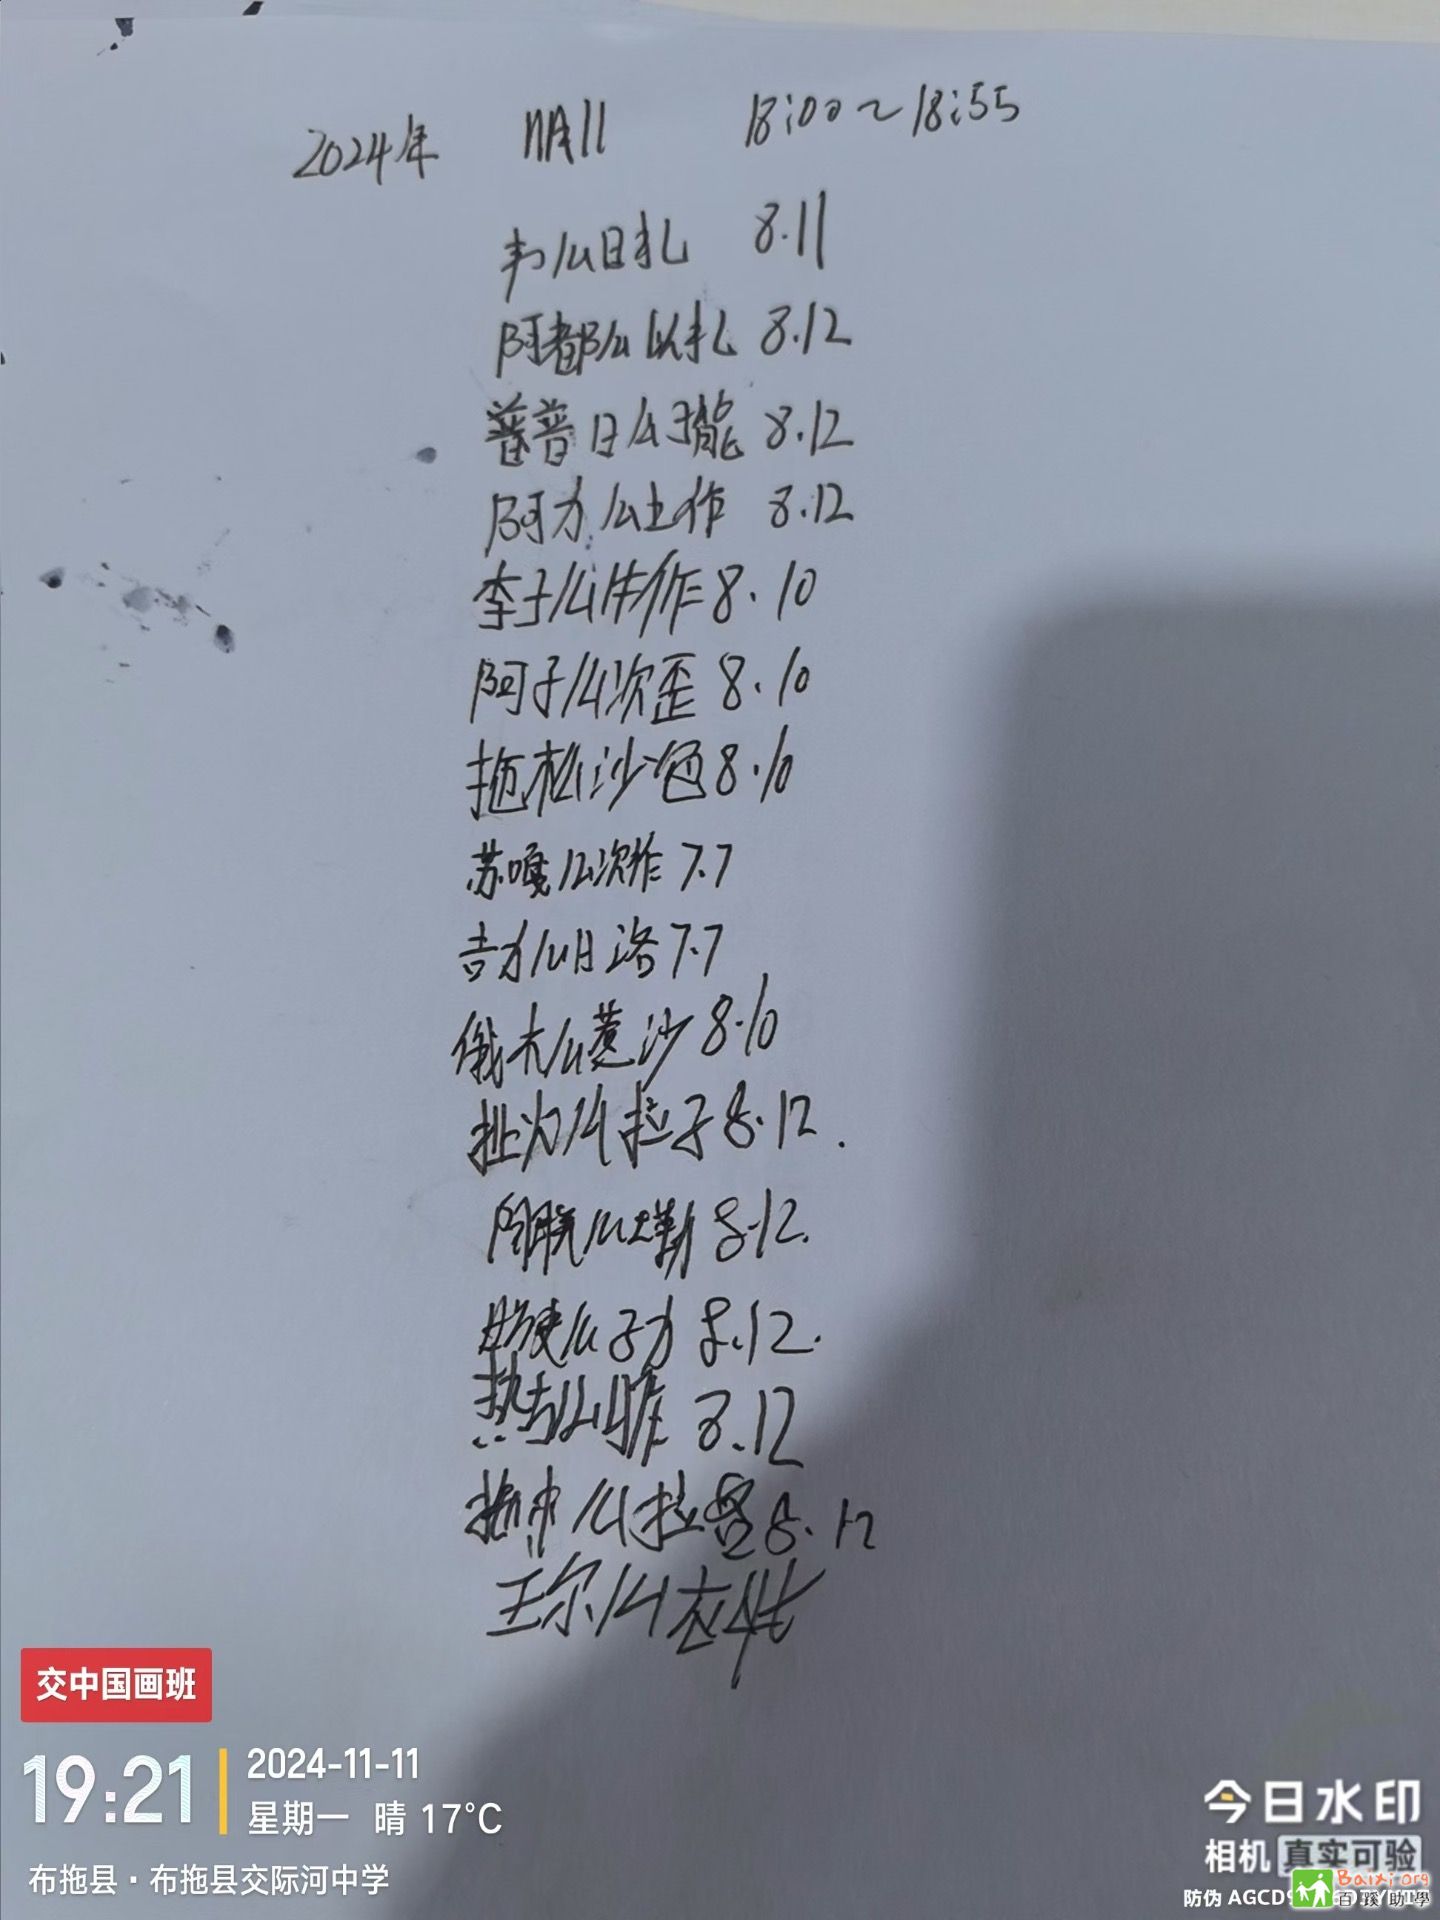 2024年 11月11 18:00~18:55
韦么日扎 8.11
阿都么以扎 8.12
普普日么 8.12
阿力么土作 8.12
李子么牛作 8.10
阿子么次歪 8.10
拖松沙色 8.10
苏嘎么次作 7.7
吉力么日洛 7.7
俄木么惹沙 8.10
么拉子 8.12.
么土勒 8.12.
么子力 8.12.
8.12
么拉 8.12
王尔么
交中国画班
19:21
2024-11-11
星期一 晴 17°C
布拖县·布拖县交际河中学
今日水印
相机 真实可验
防伪
Baixi.org
百蹊助學